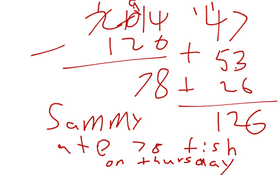 204 47
- 126 + 53
78 + 26
126
Sammy
ate 78 fish
on thursday